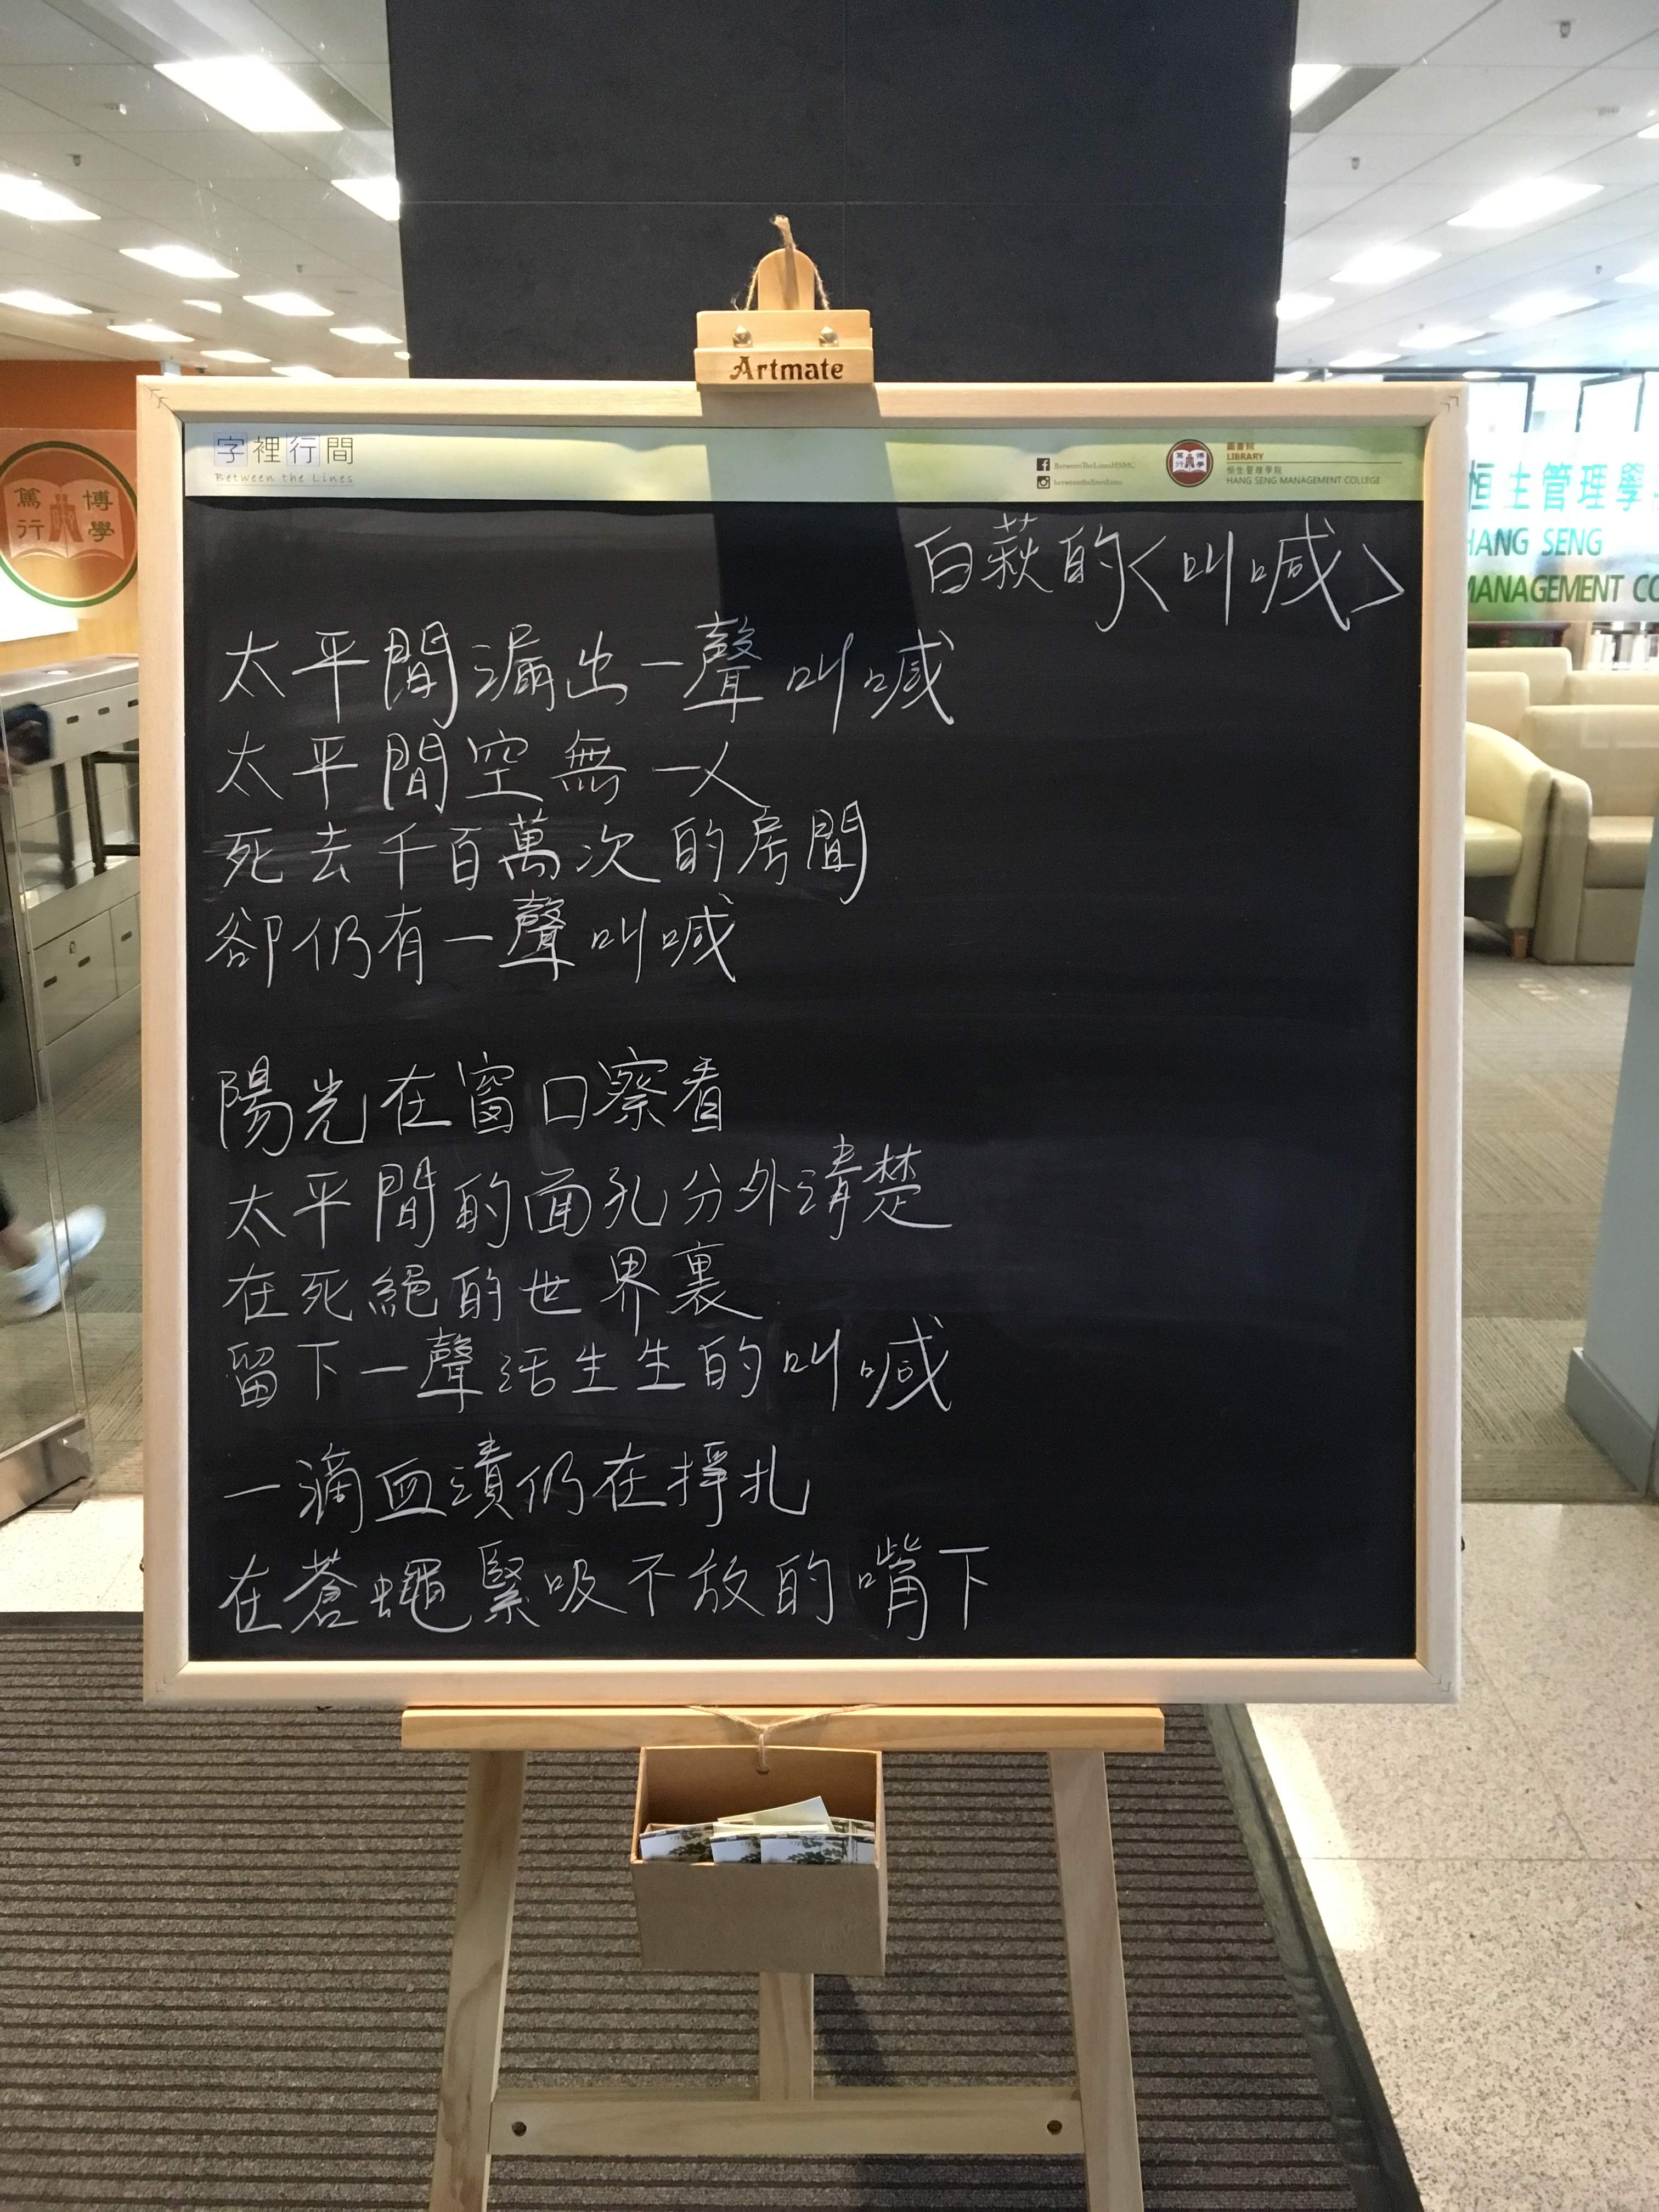 Artmate
字裡行間
Between the Lines
BetweenTheLinesHSMC
圖書館
LIBRARY
恒生管理學院
HANG SENG MANAGEMENT COLLEGE
博學
篤行
恒生管理學
HANG SENG
MANAGEMENT CO
白萩的<叫喊>
太平間漏出一聲叫喊
太平間空無一人
死去千百萬次的房間
卻仍有一聲叫喊
陽光在窗口察看
太平間的面孔分外清楚
在死絕的世界裏
留下一聲活生生的叫喊
一滴血漬仍在掙扎
在蒼蠅緊吸不放的嘴下